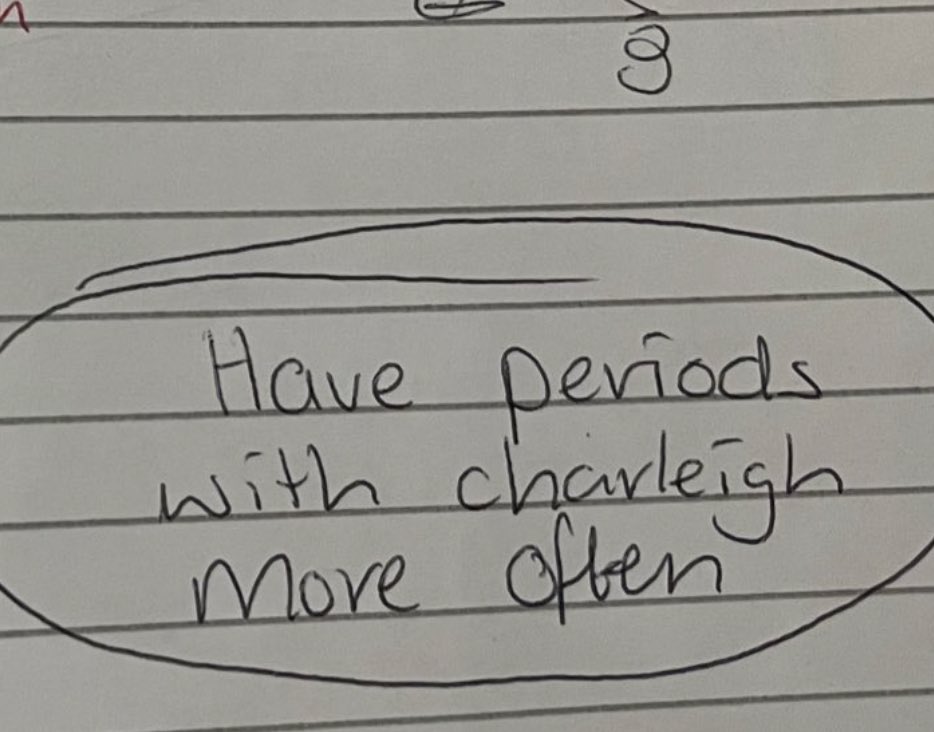 g
Have periods
with charleigh
more often